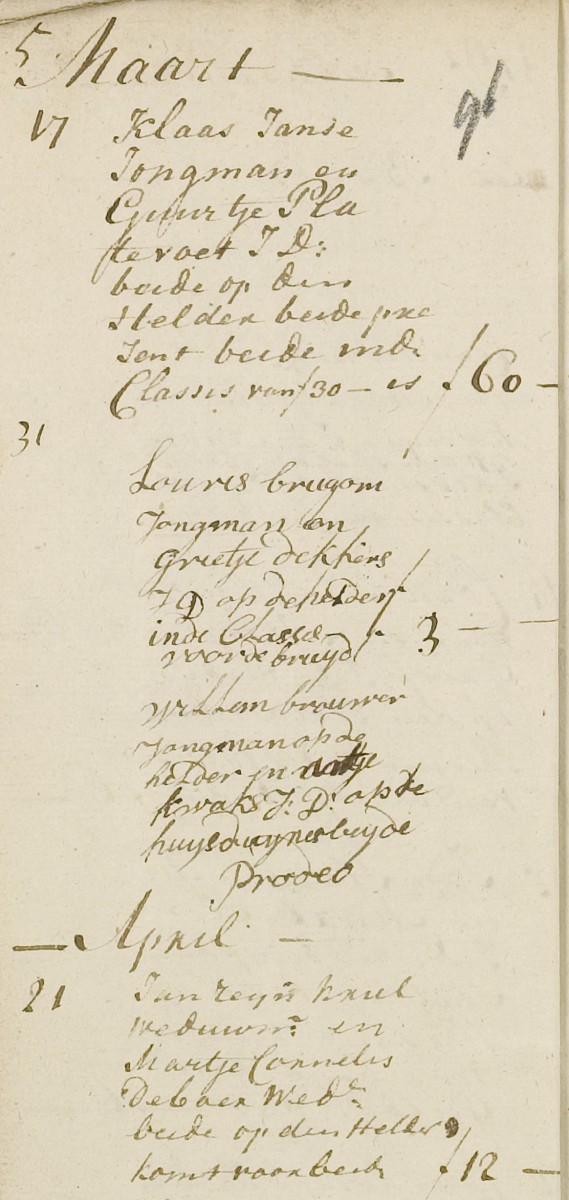 5 Maart —
17 Klaas Janse
Jongman en
Guurtje Pla
tevoet J D:
beide op den
Helder beide pre
sent beide in d:
Classis van f 30 — is f 60 —
31
Louris brugom
Jongman en
Grietje dekkers
J D op de helder
in de Classe — f 3 — —
voor de bruyd
Willem brouwer
Jongman op de
helder en
kwaks J: D: op de
huysduynes beyde
Prodeo
— April —
21 Jan Zeyn Krul
Weduwn:r en
Martje Cornelis
De boer Wed:e
beide op den Helder
komt voor beide f 12 —